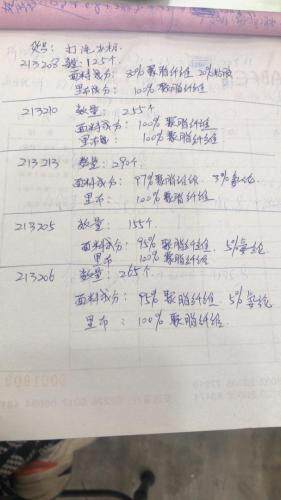 货号: 打洗水机
213208 数量: 125个
面料成分: 80%聚脂纤维 20%粘胶
里布成分: 100%聚脂纤维
213210 数量: 255个
面料成分: 100%聚脂纤维
里布: 100%聚脂纤维
213213 数量: 290个.
面料成分: 97%聚脂纤维 3%氨纶
里布: 100%聚脂纤维
213205 数量: 155个
面料成分: 95%聚脂纤维 5%氨纶
里布: 100%聚脂纤维
213206 数量: 265个
面料成分: 95%聚脂纤维. 5%氨纶
里布: 100%聚脂纤维.